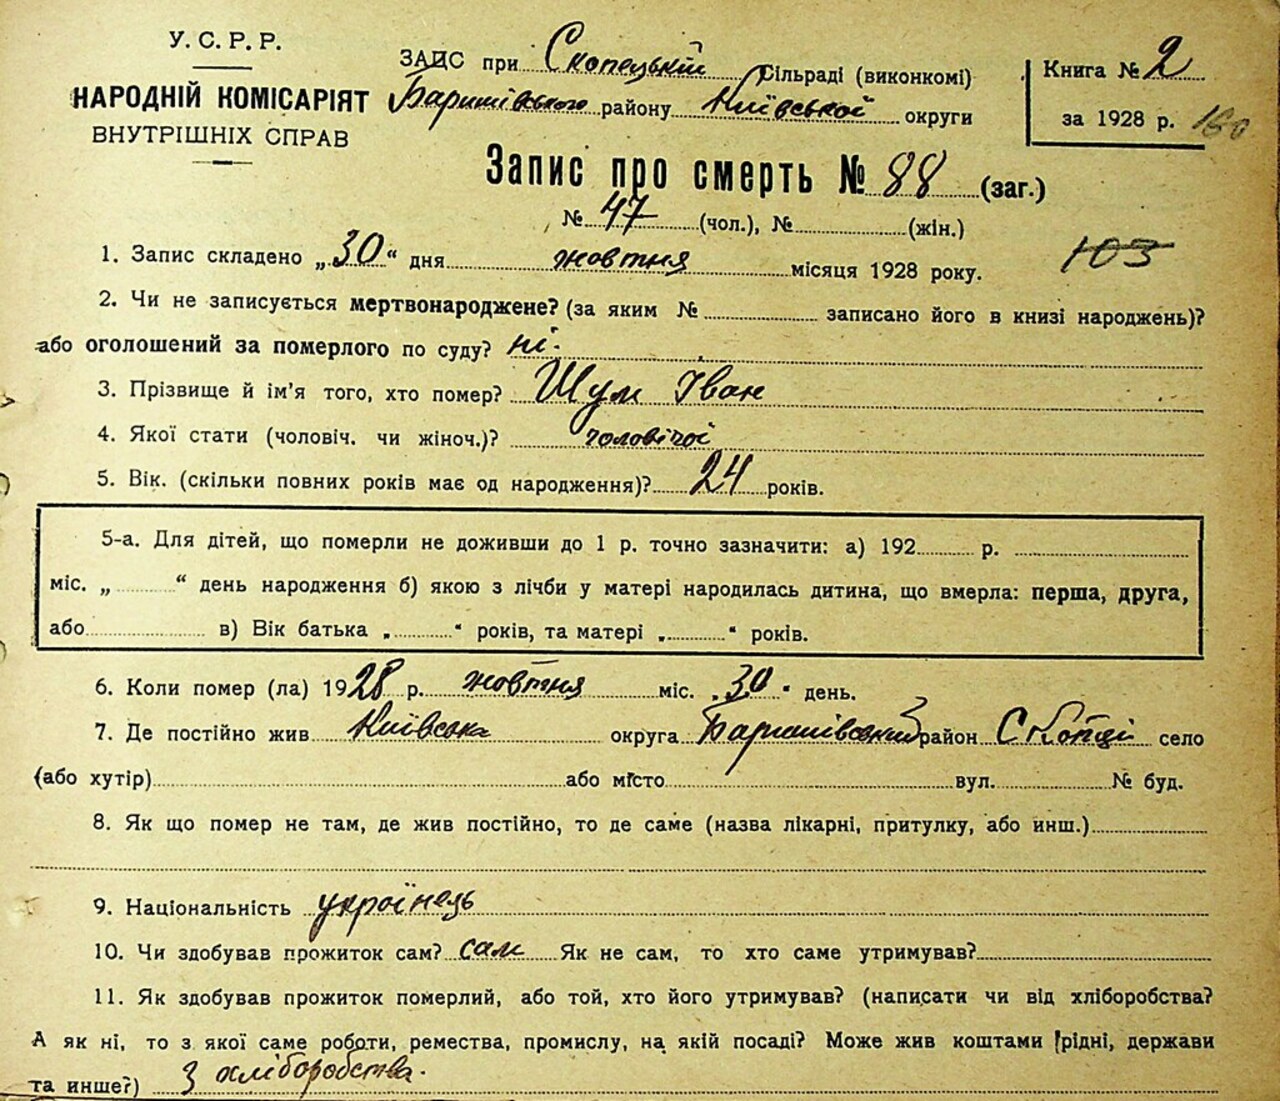 У. С. Р. Р.
НАРОДНІЙ КОМІСАРІЯТ
ВНУТРІШНІХ СПРАВ
ЗАПИС при Скопецькій Сільраді (виконкомі)
Баришівського району Київської округи
Книга № 2
за 1928 р. 160
Запис про смерть № 88 (заг.)
№ 47 (чол.), № (жін.)
103
1. Запис складено „30“ дня жовтня місяця 1928 року.
2. Чи не записується мертвонароджене? (за яким № записано його в книзі народжень)?
або оголошений за померлого по суду? ні.
3. Прізвище й ім’я того, хто помер? Шум Іван
4. Якої стати (чоловіч. чи жіноч.)? чоловічої
5. Вік. (скільки повних років має од народження)? 24 років.
5-а. Для дітей, що померли не доживши до 1 р. точно зазначити: а) 192 р.
міс. „ “ день народження б) якою з лічби у матері народилась дитина, що вмерла: перша, друга,
або в) Вік батька „ “ років, та матері „ “ років.
6. Коли помер (ла) 1928 р. жовтня міс. „30“ день.
7. Де постійно жив Київська округа Баришівський район Скопці село
(або хутір) або місто вул. № буд.
8. Як що помер не там, де жив постійно, то де саме (назва лікарні, притулку, або инш.)
9. Національність українець
10. Чи здобував прожиток сам? сам Як не сам, то хто саме утримував?
11. Як здобував прожиток померлий, або той, хто його утримував? (написати чи від хліборобства?
А як ні, то з якої саме роботи, ремества, промислу, на якій посаді? Може жив коштами рідні, держави
та инше?) З хліборобства.